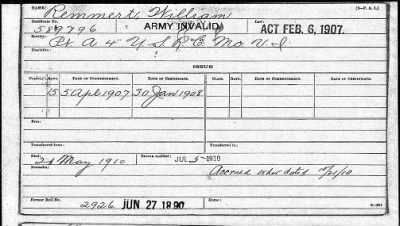 NAME: Remmert, William (3-742.)
Certificate No. 589796 ARMY INVALID ACT FEB. 6, 1907.
Service: Pt A 4" U S R C Mo V I
Disability:
ISSUE
CLASS. RATE. DATE OF COMMENCEMENT. DATE OF CERTIFICATE. CLASS. RATE. DATE OF COMMENCEMENT. DATE OF CERTIFICATE.
15 5 Apl 1907 30 Jan 1908
From:
Transferred from: Transferred to:
Died 21 May 1910 Bureau notified: JUL 5-1910
Remarks: Accrued order dated 10/21/10
Former Roll No. 2926 JUN 27 1890